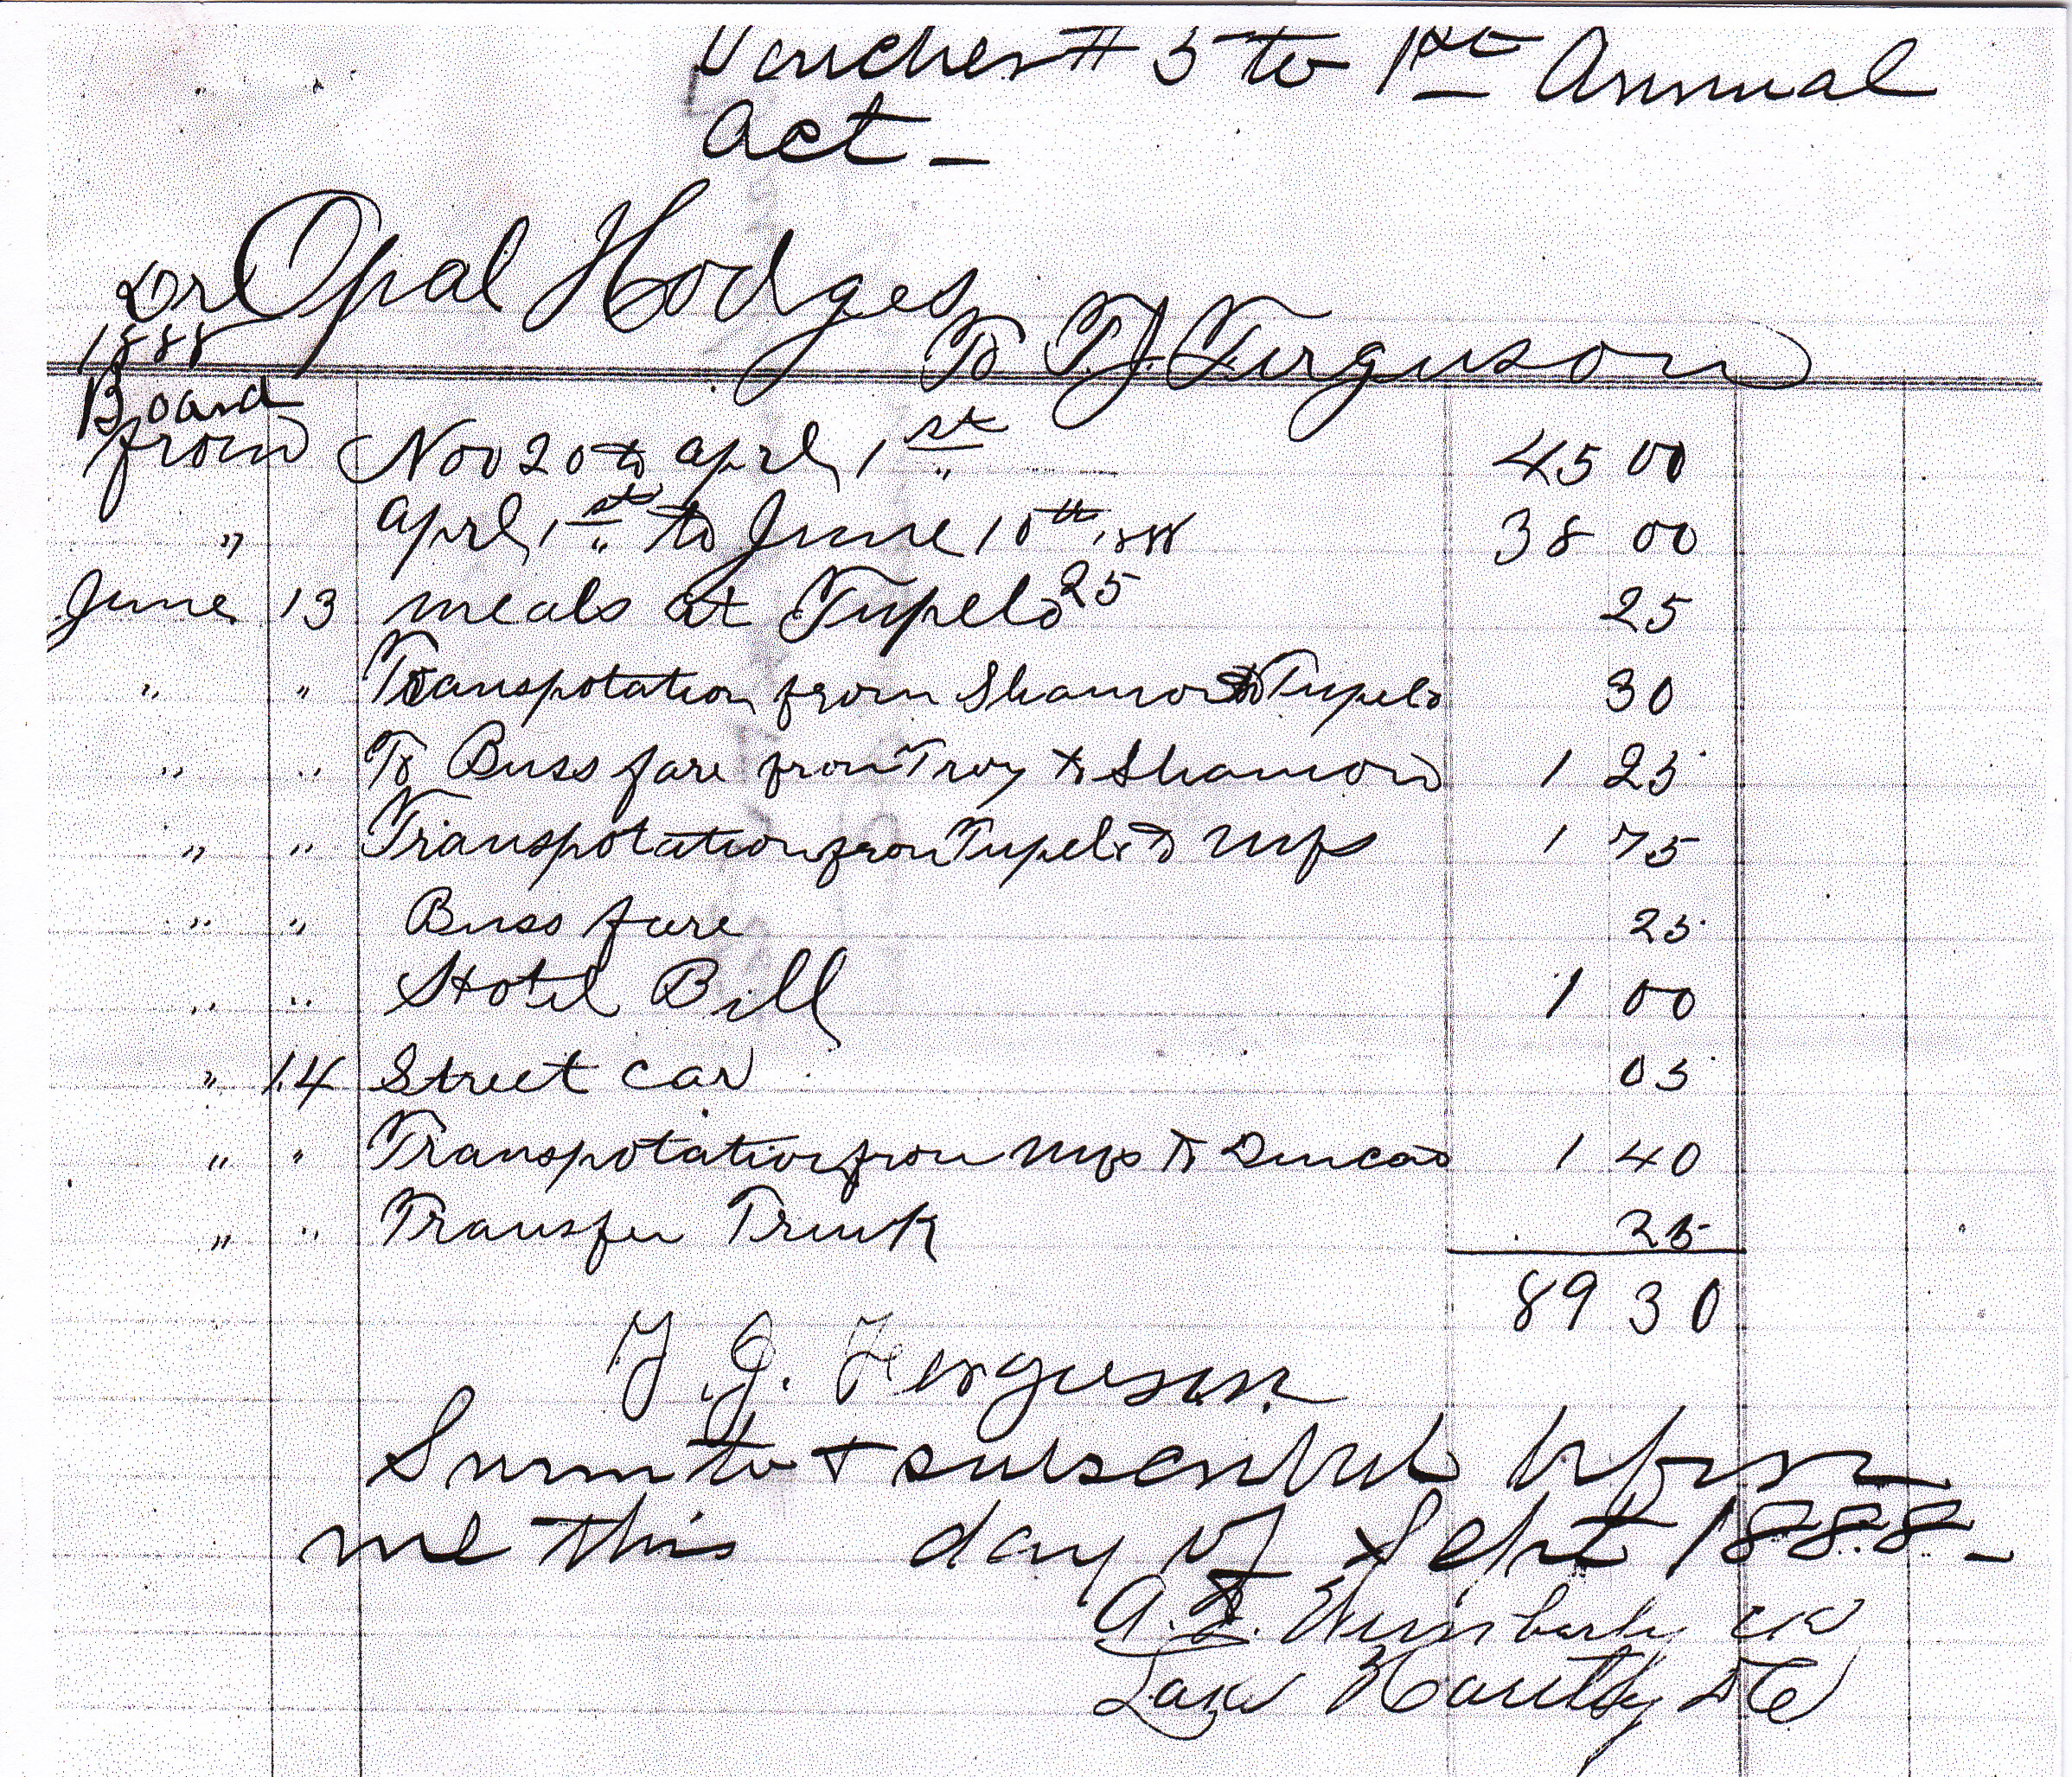 Voucher # 5 to 1st Annual
Act -
Dr Opal Hodges
1888 To T.J. Ferguson
Board
from Nov 20 to Aprl 1st 45 00
" Aprl 1st to June 10th 1888 38 00
June 13 meals at Tupelo 25 25
" " Transpotation from Shannon to Tupelo 30
" " To Buss fare from Troy to Shannon 1 25
" " Transpotation from Tupelo to Mfs 1 75
" " Buss fare 25
" " Hotel Bill 1 00
" 14 Street car 05
" " Transpotation from Mfs to Duncan 1 40
" " Transfer Trunk 25
89 30
T. J. Ferguson
Sworn to + subscribed before
me this day of Sept 1888 -
Wimberly Clk
DC